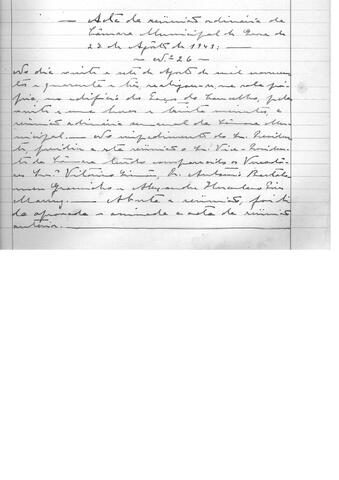 — Acta da reünião ordinária da
Câmara Municipal de
de Agôsto de 1943: —
— Nº 26 —
No dia vinte e sete de Agosto de mil novecen
tos e quarenta e três, realizou-se, na sala pró-
pria, no edificio do Paços do Concelho, pelas
vinte e uma horas e trinta minutos, a
reünião ordinária semanal da Câmara Mu-
nicipal. — No impedimento do Sr. Presiden
te, presidiu a esta reünião o Sr. Vice-Presiden
te da Câmara tendo comparecido os Vereado-
res Srs. Vitorino Dr. António Bartolo
meu Gramincho e Alexandre Herculano Pires
— Aberta a reünião, foi li
da aprovada e assinada a acta da reünião
anterior. —